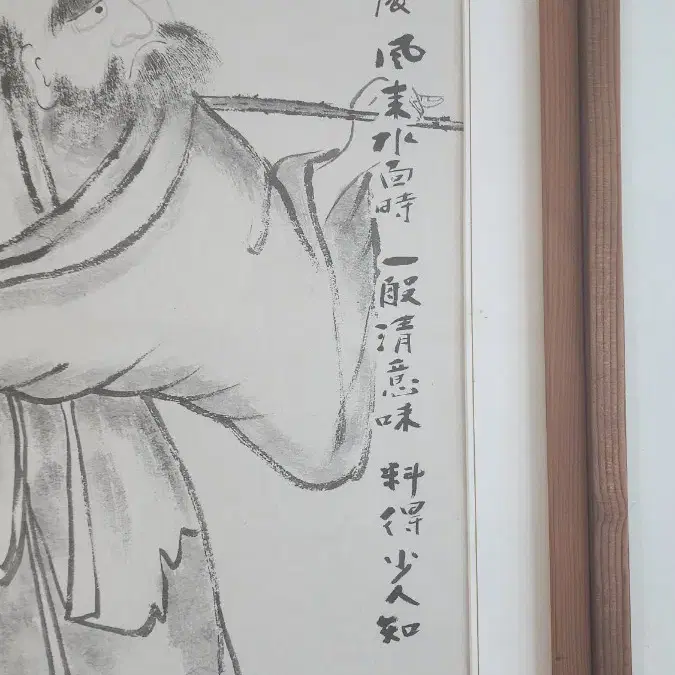 風來水面時 一般清意味 料得少人知